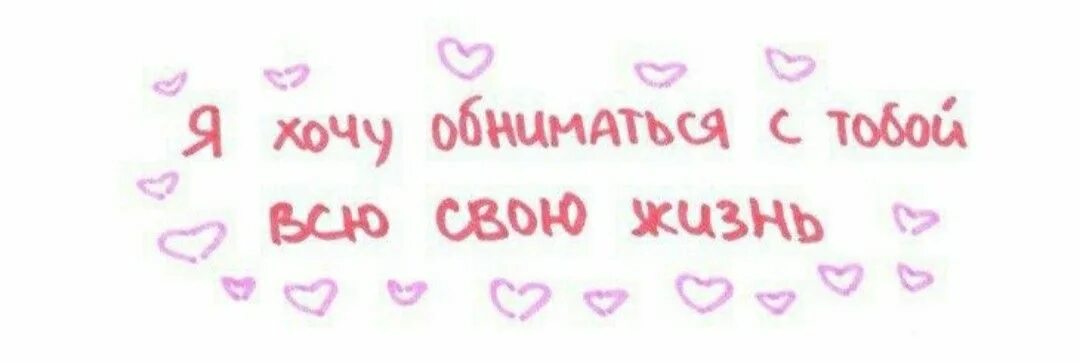 Я хочу обниматься с тобой
всю свою жизнь